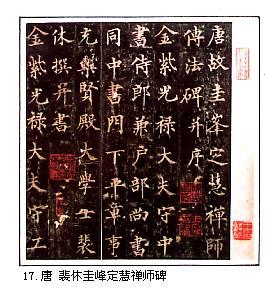 唐故圭峯定慧禪師
傳法碑并序
金紫光祿大夫守中
書侍郎兼戶部尚書
同中書門下平章事
充集賢殿大學士裴
休撰并書
金紫光祿大夫守工
17.唐 裴休圭峰定慧禅师碑